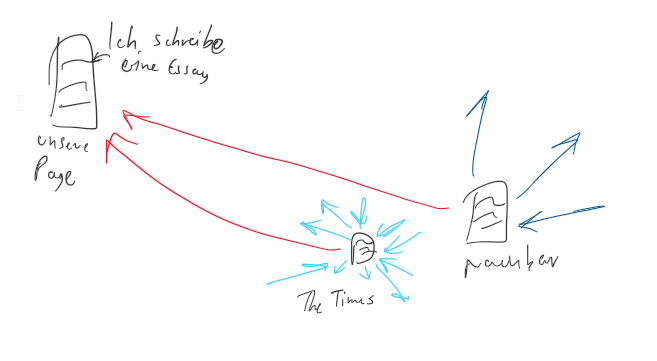 Ich schreibe
eine Essay
unsere
Page
The Times
nachbar